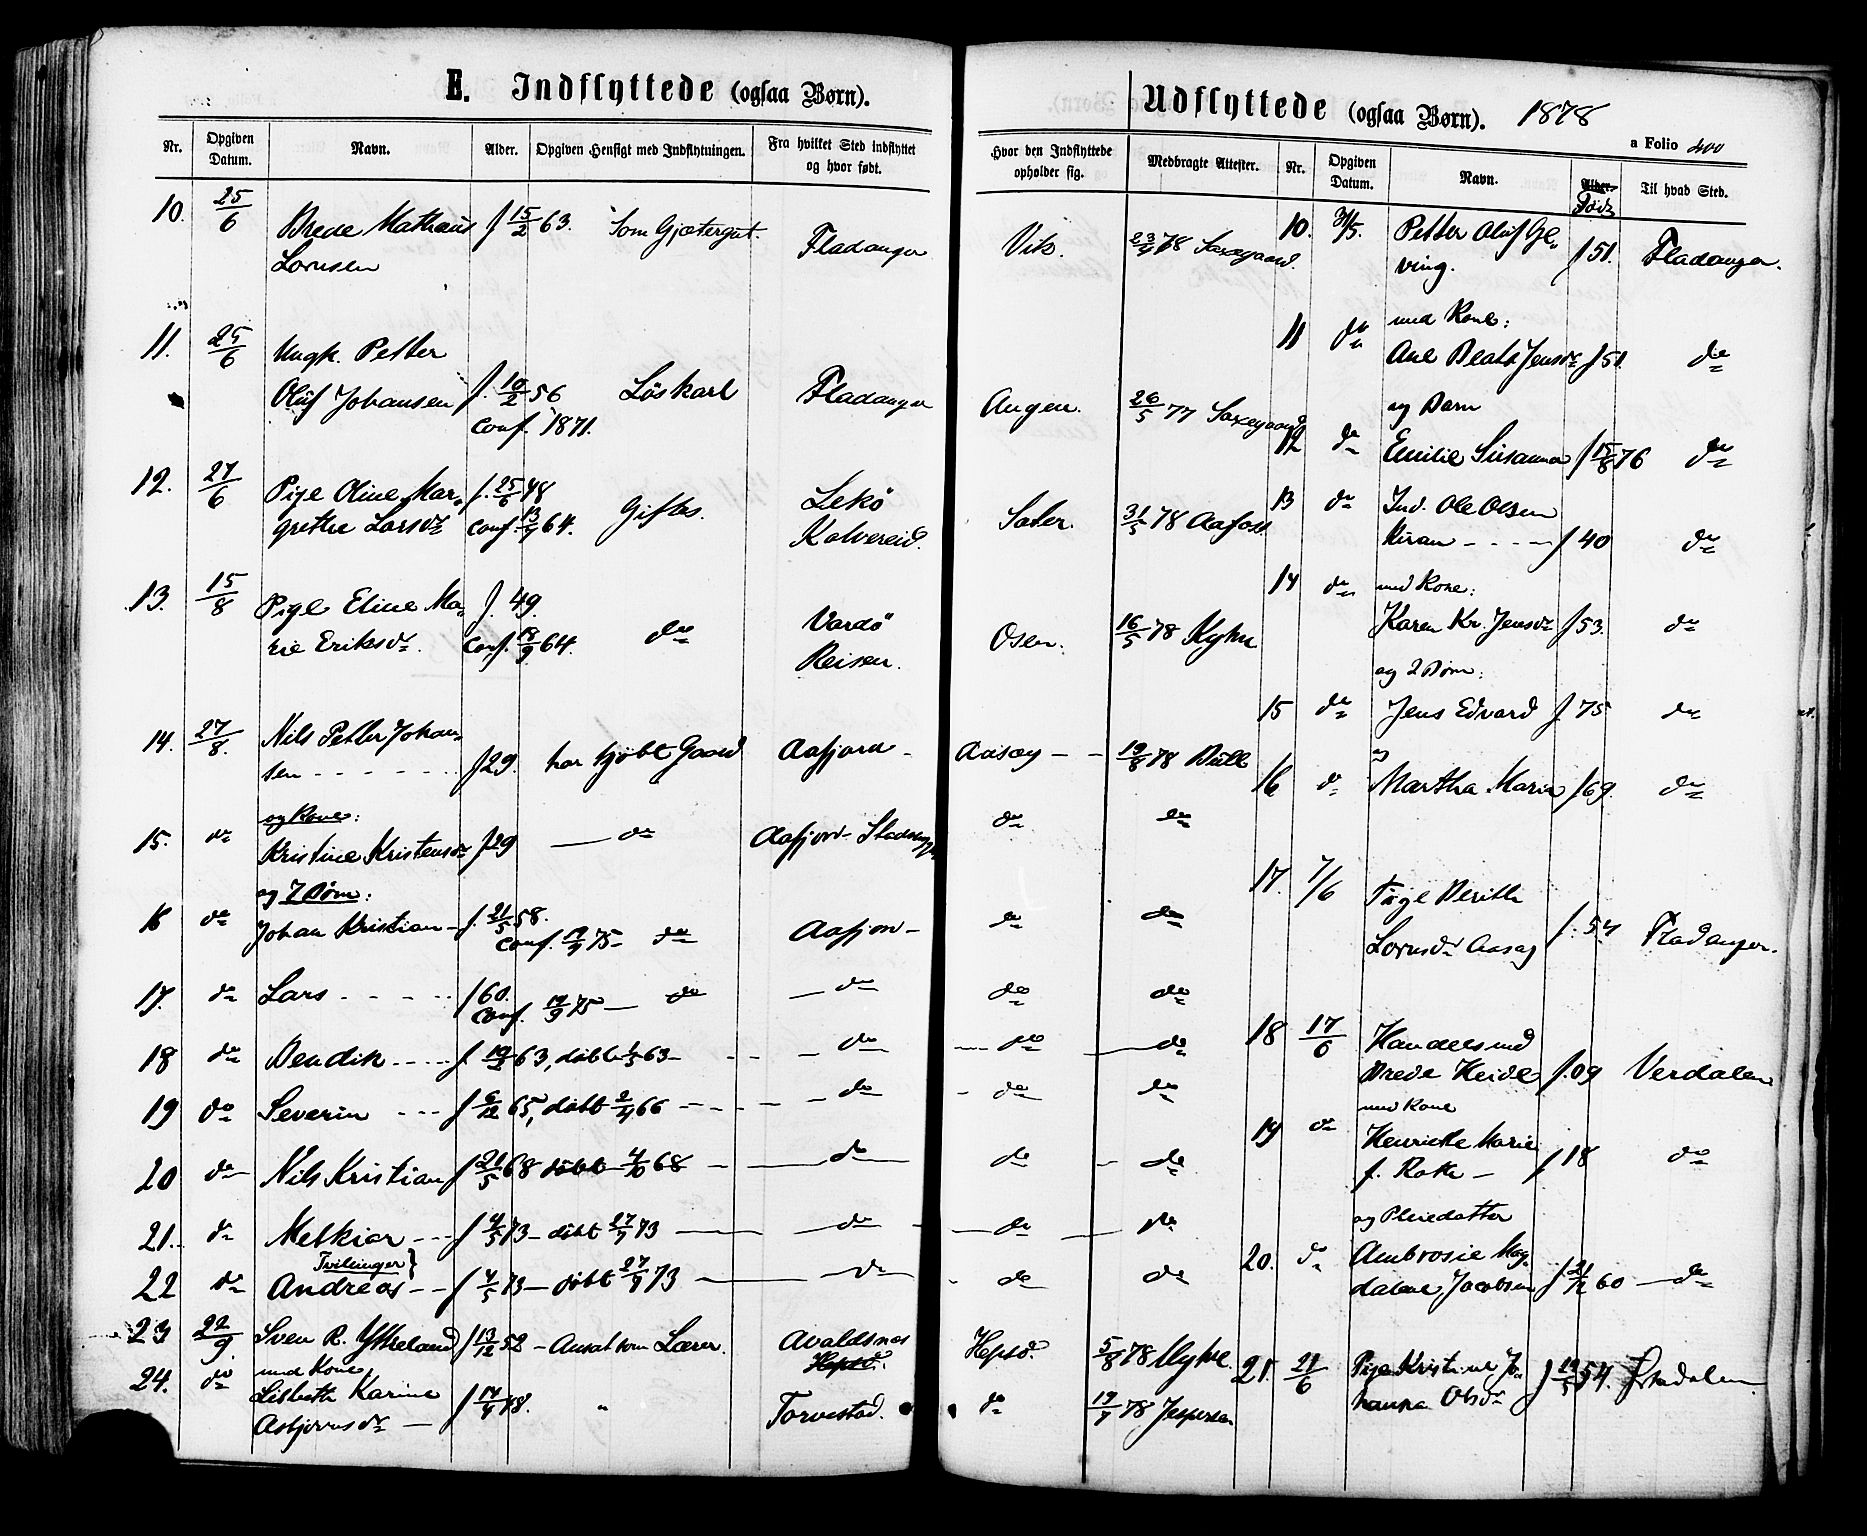 E. Indflyttede (ogsaa Børn).
Nr. Opgiven Datum. Navn. Alder. Opgiven Hensigt med Indflytningen. Fra hvilket Sted indflyttet og hvor født.
Hvor den Indflyttede opholder sig. Medbragte Attester.
10. 25/6 Brede Mathæus f 15/2 63. Som Gjætergut. Fladanger Vik. 23/4 78 Saxegaard.
Lornsen
11. 25/6 Ungk. Petter
Oluf Johansen f. 10/2 56 Löskarl Fladanger Augen. 26/5 77 Saxegaard
conf. 1871.
12. 27/6 Pige Oline Mar- f. 25/6 48 Giftes. Lekö Sæter. 31/5 78 Aafoss.
grethe Larsdr conf. 13/9 64. Kolvereid.
13. 15/8 Pige Eline Ma- f. 49. do Vardö Osen. 16/5 78 Kyhn
rie Eriksdr. conf. 18/9 64. Reisen.
14. 27/8. Nils Petter Johan-
sen - - - - - f 29. har kjöbt Gaard Aafjord - Aasæg - - 19/8 78 Bull
og Kone:
15. do Kristine Kristensdr f 29 — do Aafjord - do do
og 7 Börn:
16 do Johan Kristian - f. 21/5 58. do Aafjord - do do
conf. 19/9 75 -
17. do Lars - - - - f 60. do — do do do
conf. 19/9 75 —
18 do Bendik - - - - f 19/2 63, döbt 1/5 63 - - - do — do — do
19 do Severin - - - f 6/12 65, döbt 2/4 66 - - - - do - do do
20 do Nils Kristian f 21/5 68 döbt 4/10 68 — do do - do
21. do Melkior - - - f 4/5 73 - döbt 27/7 73 — do — do do
Tvilinger }
22 do Andreas - - f 4/5 73 — döbt 27/7 73 — do - do do
23 22/9 Sven R. Ytreland f 13/12 52 - Ansat som Lærer. Avaldsnes Hepsö. 5/8 78
Hepsö.
24. do med Kone,
Lisbeth Karine f 14/4 48. " Torvestad. do 19/7 78 Jespersen
Asbjörnsdr —
Udflyttede (ogsaa Børn). 1878
a Folio 400
Nr. Opgiven Datum. Navn. Alder. Född Til hvad Sted.
10. 31/5. Petter Oluf Gl-
ving. f 51. Fladanger.
med Kone:
11 do Ane Beata Jensdr f 51. do
og Barn
12 do Emilie Susanna f 15/8 76 do
13 do Ind. Ole Olsen
Kiran - - - - f 40 do
14 do med Kone:
Karen Kr. Jensdr f 53. do
og 2 Börn:
15 do Jens Edvard f. 75 do
16 do Martha Maria f 69. do
17. 7/6 Pige Berith
Lornsdr Aasæg f. 54 Fladanger.
18 17/6 Handelsmd
Brede Heide f. 09 Verdalen
med Kone
19 do Henriette Marie
f. - f 18 do
og Pleiedatter
20. do Ambrosie Mag-
dalene Jacobsen f 21/12 60 — do
21. 21/6 Pige Kristine Jo-
hanna Olsdr f 54. Stadalen